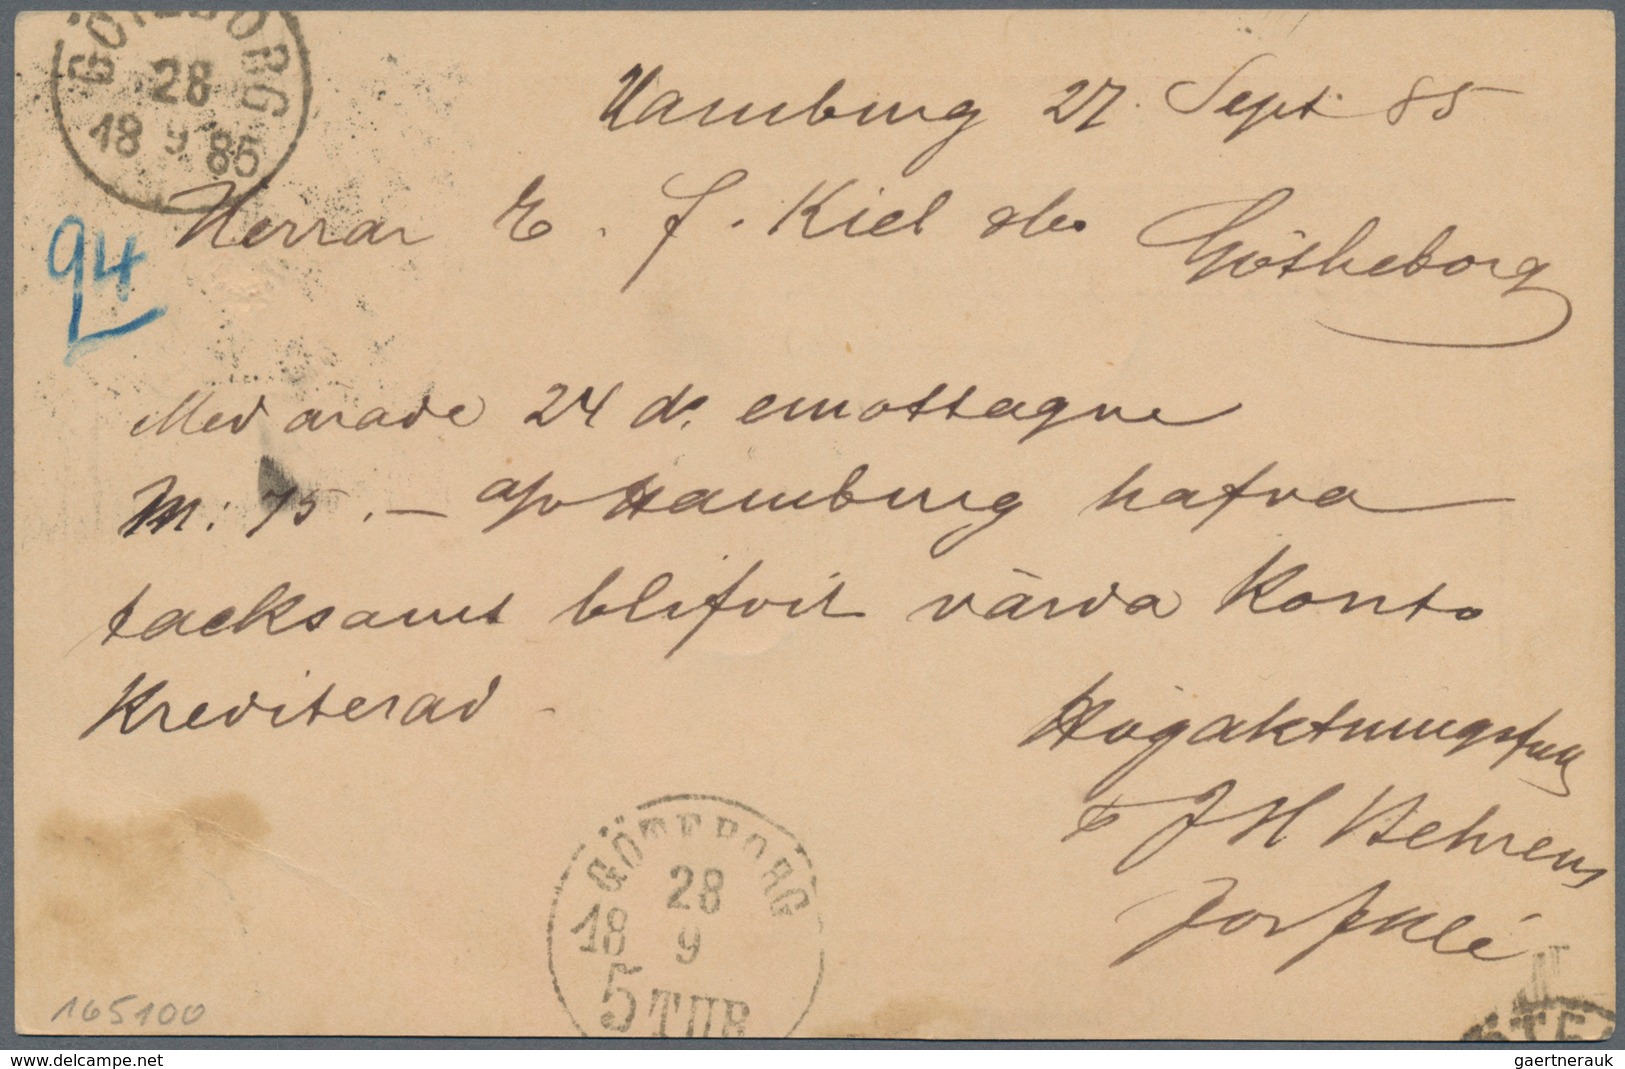 GÖTEBORG
28
18 9 85
Hamburg 27. Sept. 85
Herrar E. F. Kiel &Co. Götheborg
94
Med ärade 24 ds. emottagne
M: 75.- på Hamburg hafva
tacksamt blifvit värda Konto
Krediterad
Högaktningsfull
J H Behrens
GÖTEBORG
28
18 9
5 TUR
165100
gaertnerauk
www.delcampe.net